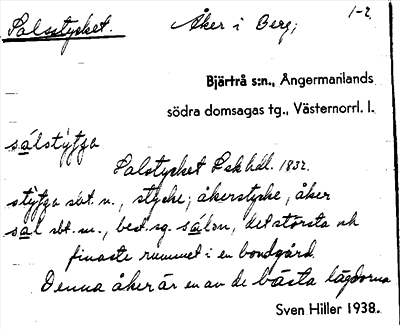 Salsstycket. Åker i Berg; 1-2.
Bjärtrå s:n., Ångermanlands
södra domsagas tg., Västernorrl. l.
sálstỳʃʃa
Salstycket Lskhdl. 1832.
stỳʃʃa sbt. n., stycke; åkerstycke, åker
sal sbt. m., best. sg. sálen, det största och
finaste rummet i en bondgård.
Denna åker är en av de bästa lägdorna
Sven Hiller 1938.